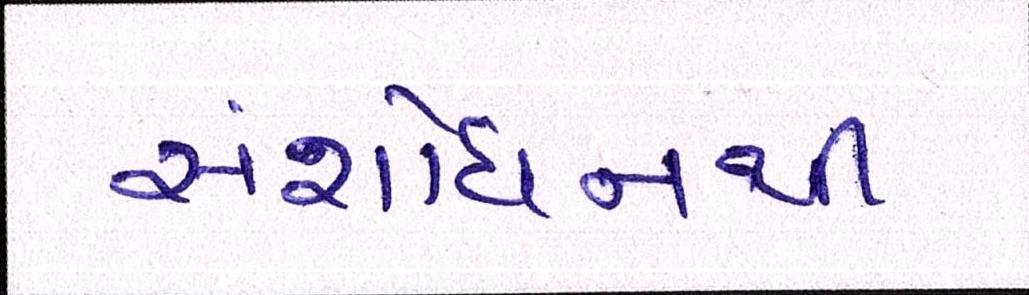 સંશોધનથી